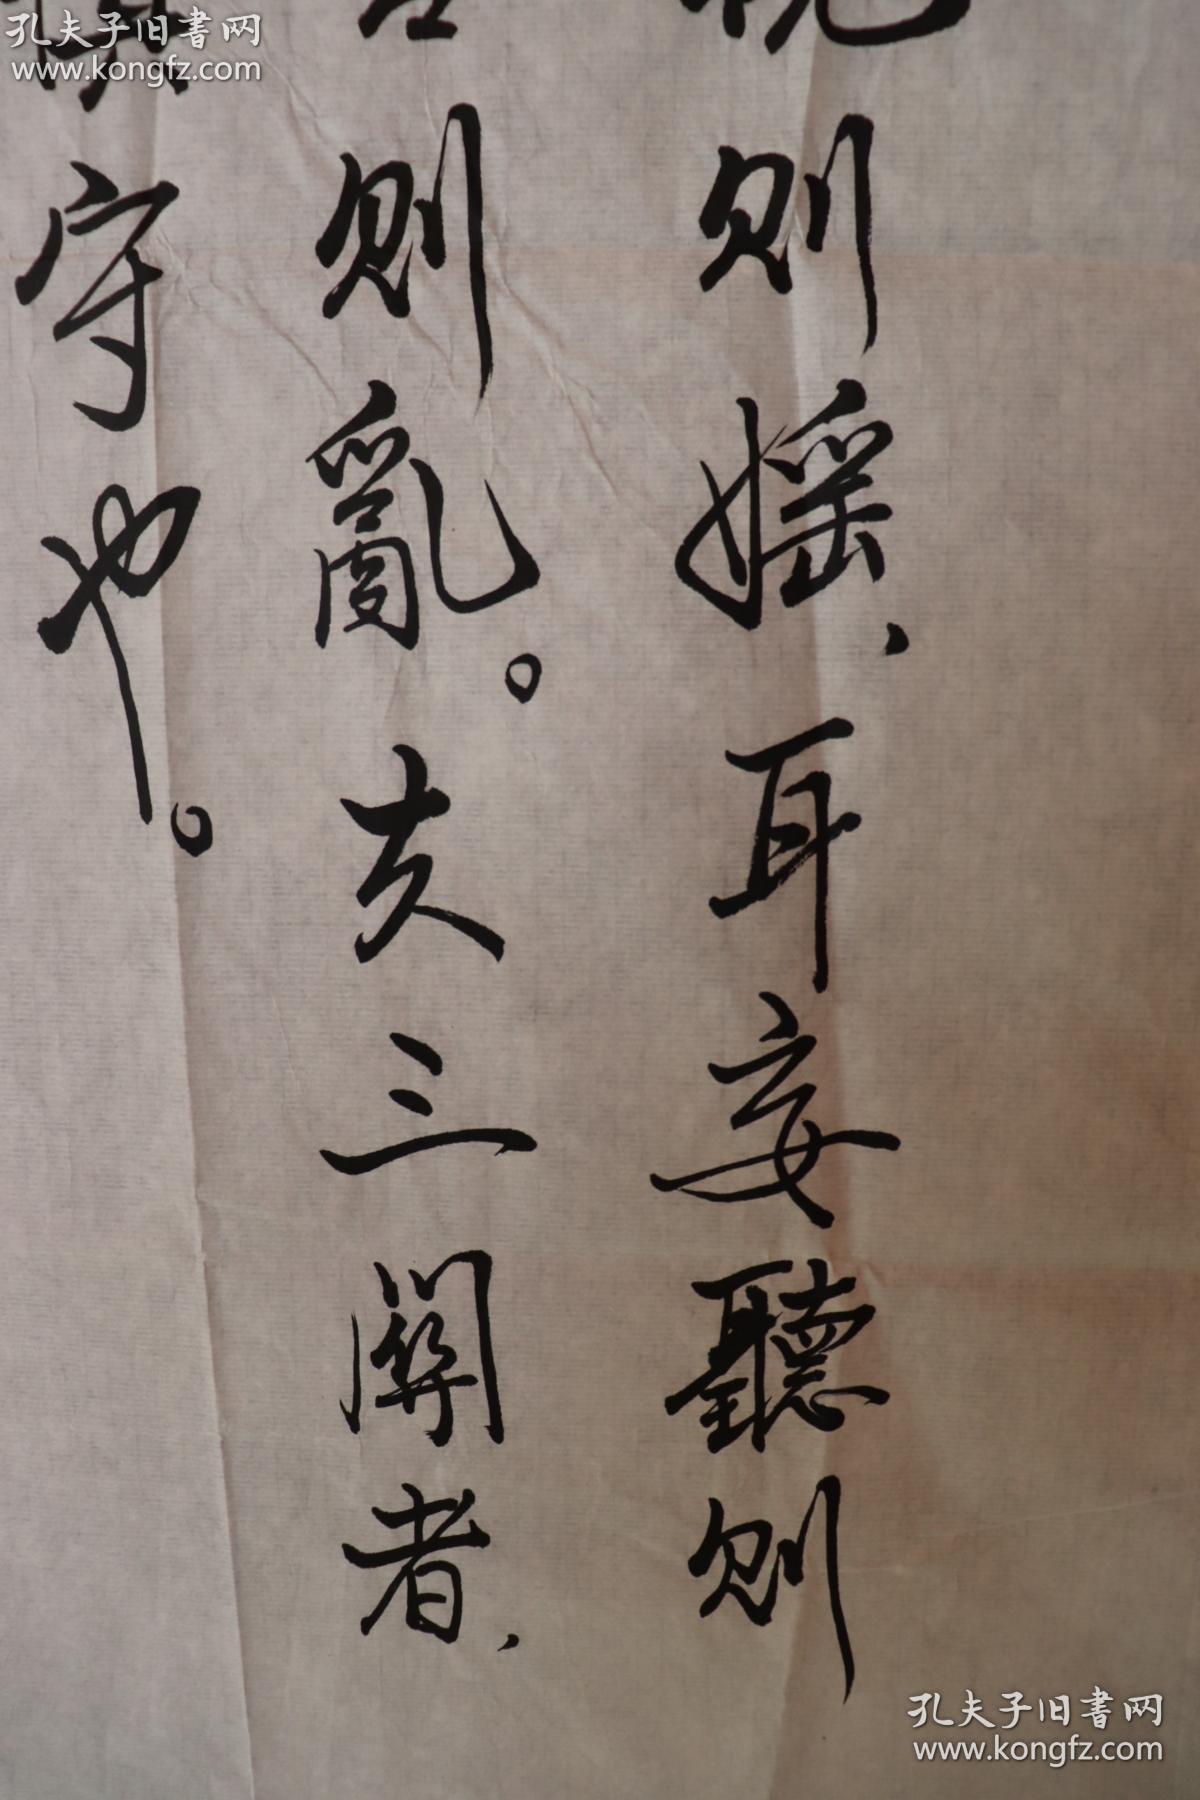 孔夫子旧書网
www.kongfz.com
則媱、耳妄聽則
則亂。夫三關者、
守也。
孔夫子旧書网
www.kongfz.com